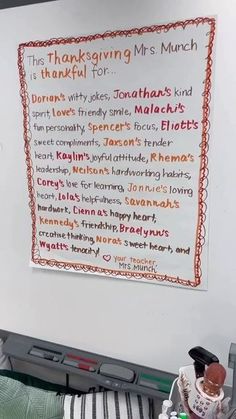 This Thanksgiving Mrs. Munch
is thankful for...
Dorian's witty jokes, Jonathan's kind
spirit, Love's friendly smile, Malachi's
fun personality, Spencer's focus, Eliott's
sweet compliments, Jaxson's tender
heart, Kaylin's joyful attitude, Rhema's
leadership, Neilson's hardworking habits,
Corey's love for learning, Jonnie's loving
heart, Lola's helpfulness, Savannah's
hardwork, Cienna's happy heart,
Kennedy's friendship, Braelynn's
creative thinking, Nora's sweet heart, and
Wyatt's tenacity!
♡ your teacher,
Mrs. Munch